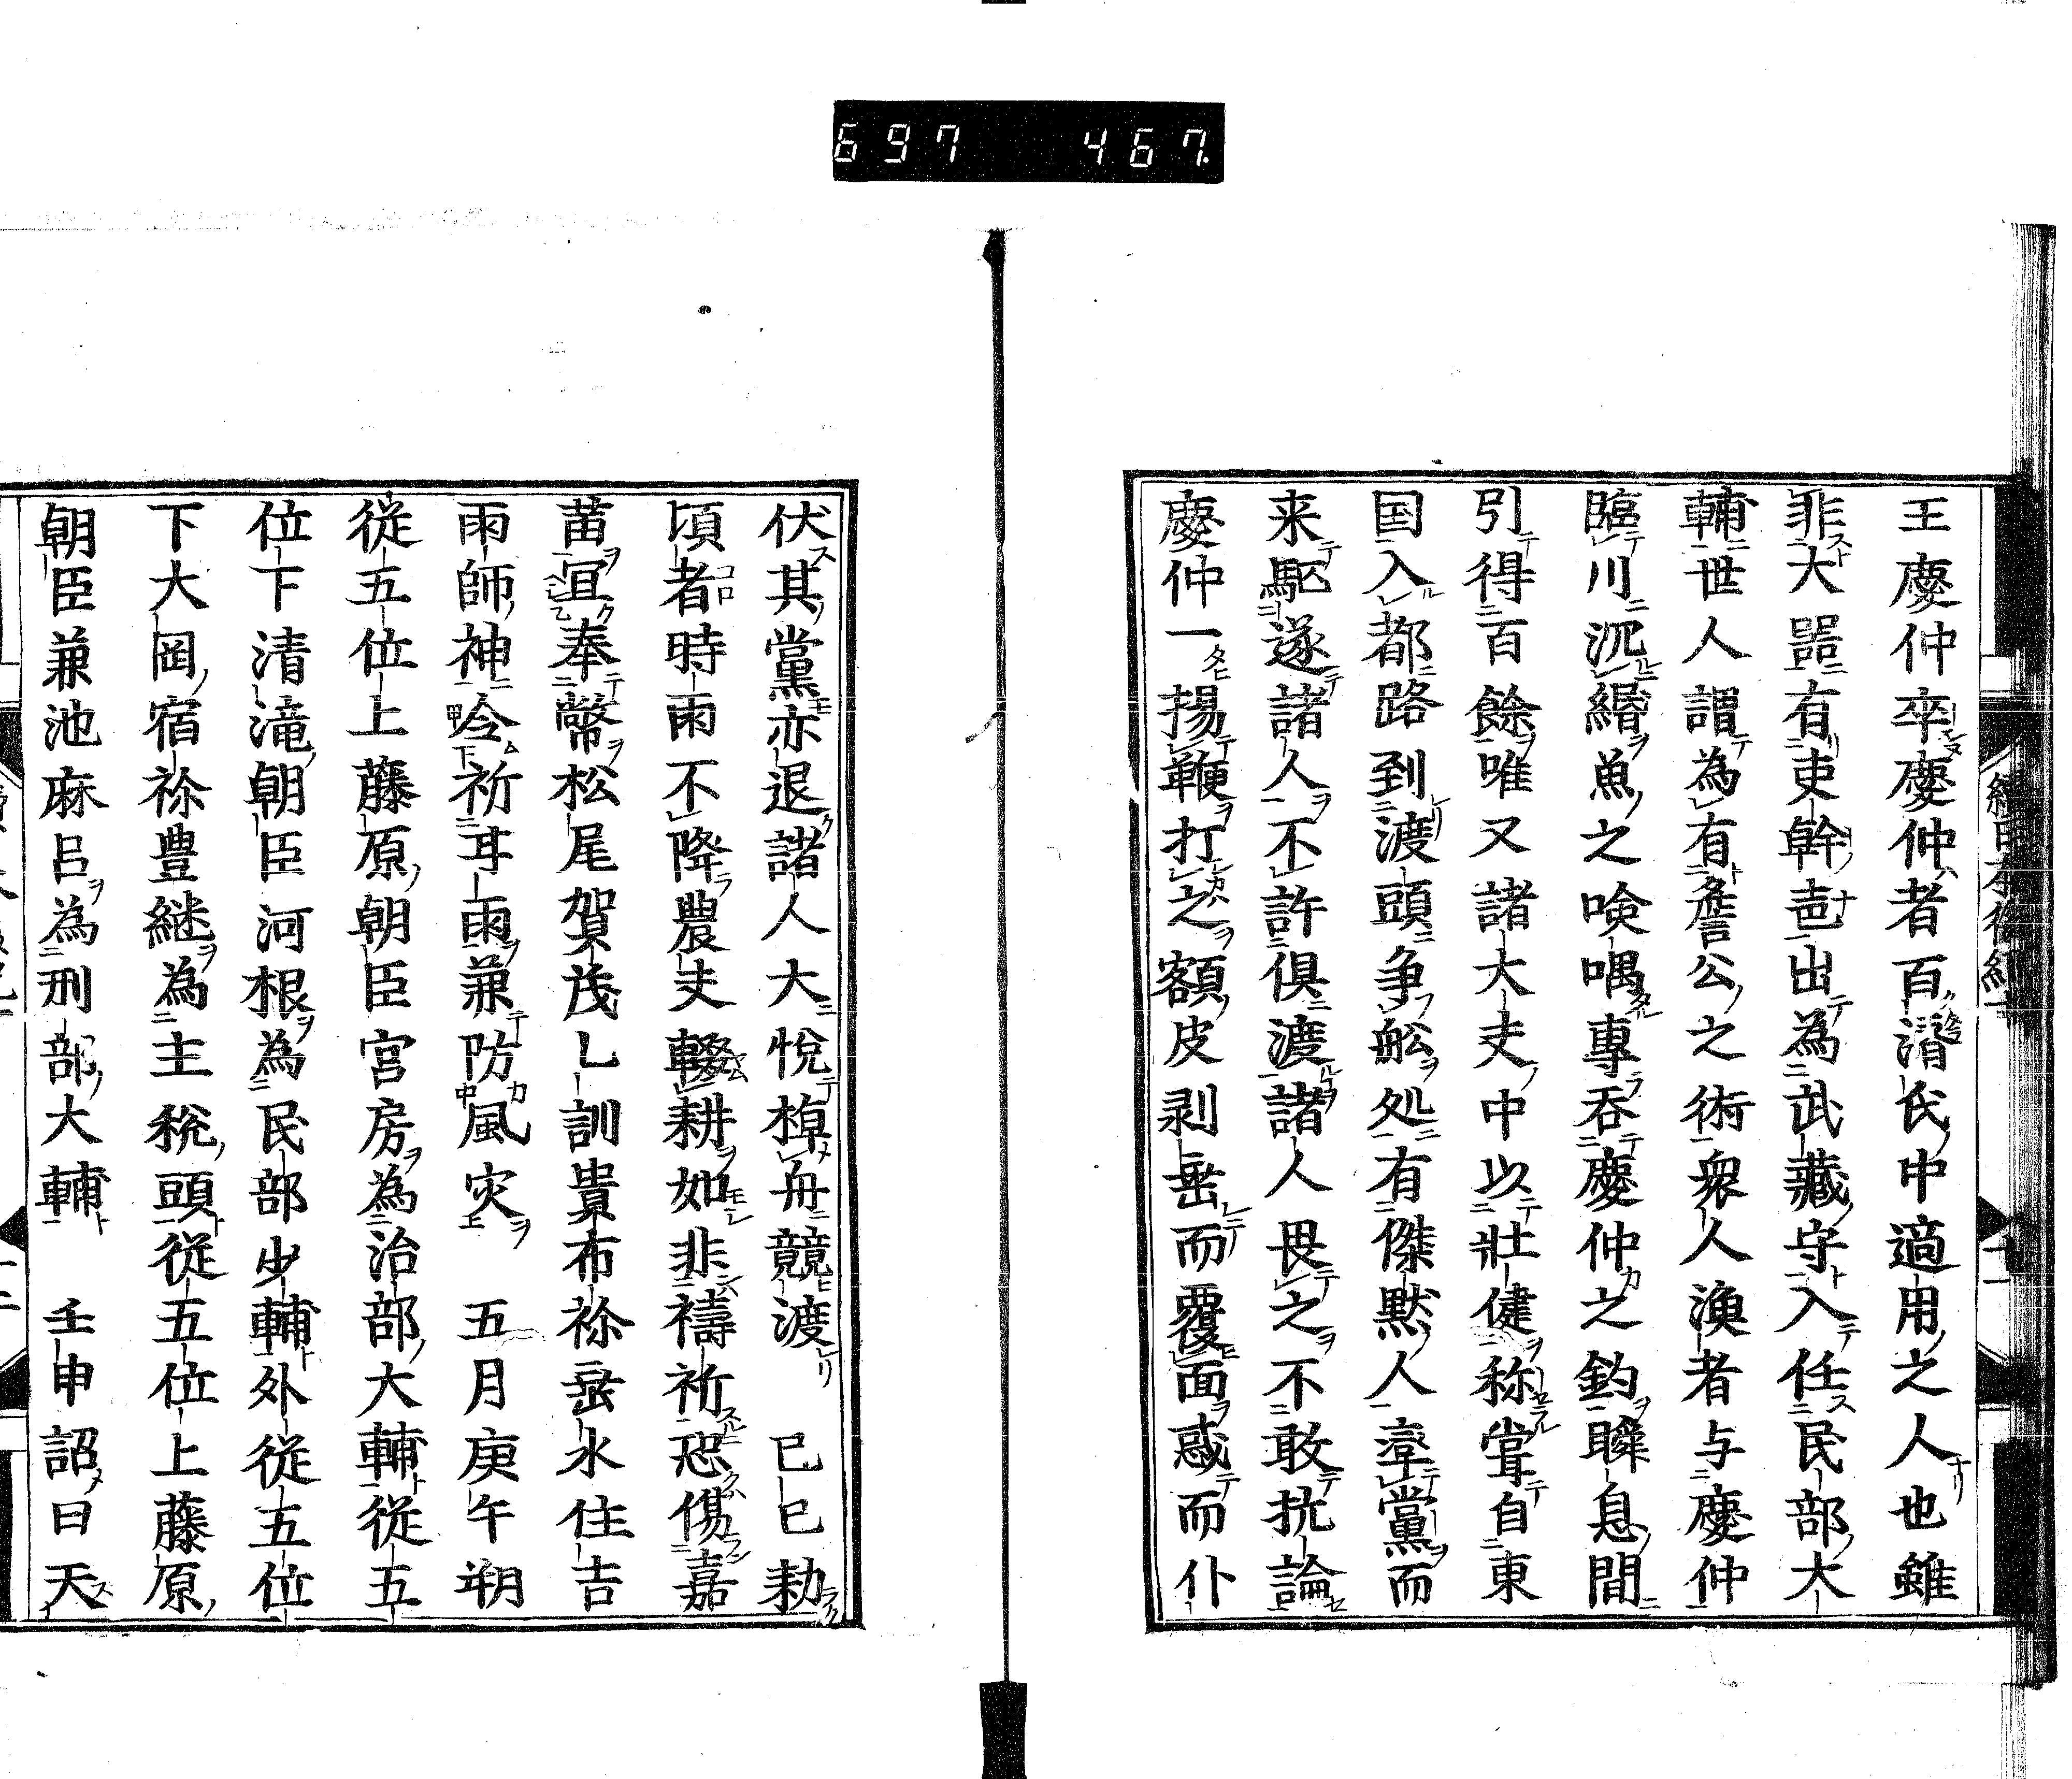 697 467.
王慶仲卒慶仲者百濟氏中適用之人也雖
非大器有吏幹芭出為武藏守入任民部大
輔世人謂為有詹公之術衆人漁者与慶仲
臨川沉緡魚之喰喁專呑慶仲之釣瞬息間
引得百餘唯又諸大夫中以壯健称嘗自東
国入都路到渡頭争舩処有傑黙人率黨而
来駈遂諸人不許倶渡諸人畏之不敢抗論
慶仲一揚鞭打之額皮剥垂而覆面惑而仆
伏其黨亦退諸人大悅棹舟競渡 己巳勑
頃者時雨不降農夫輟耕如非禱祈恐傷嘉
苗宜奉幣松尾賀茂乚訓貴布祢垂水住吉
雨師神令祈耳雨兼防風灾 五月庚午朔
従五位上藤原朝臣宮房為治部大輔従五
位下清滝朝臣河根為民部少輔外従五位
下大岡宿祢豊継為主税頭従五位上藤原
朝臣兼池麻呂為刑部大輔 壬申詔曰天